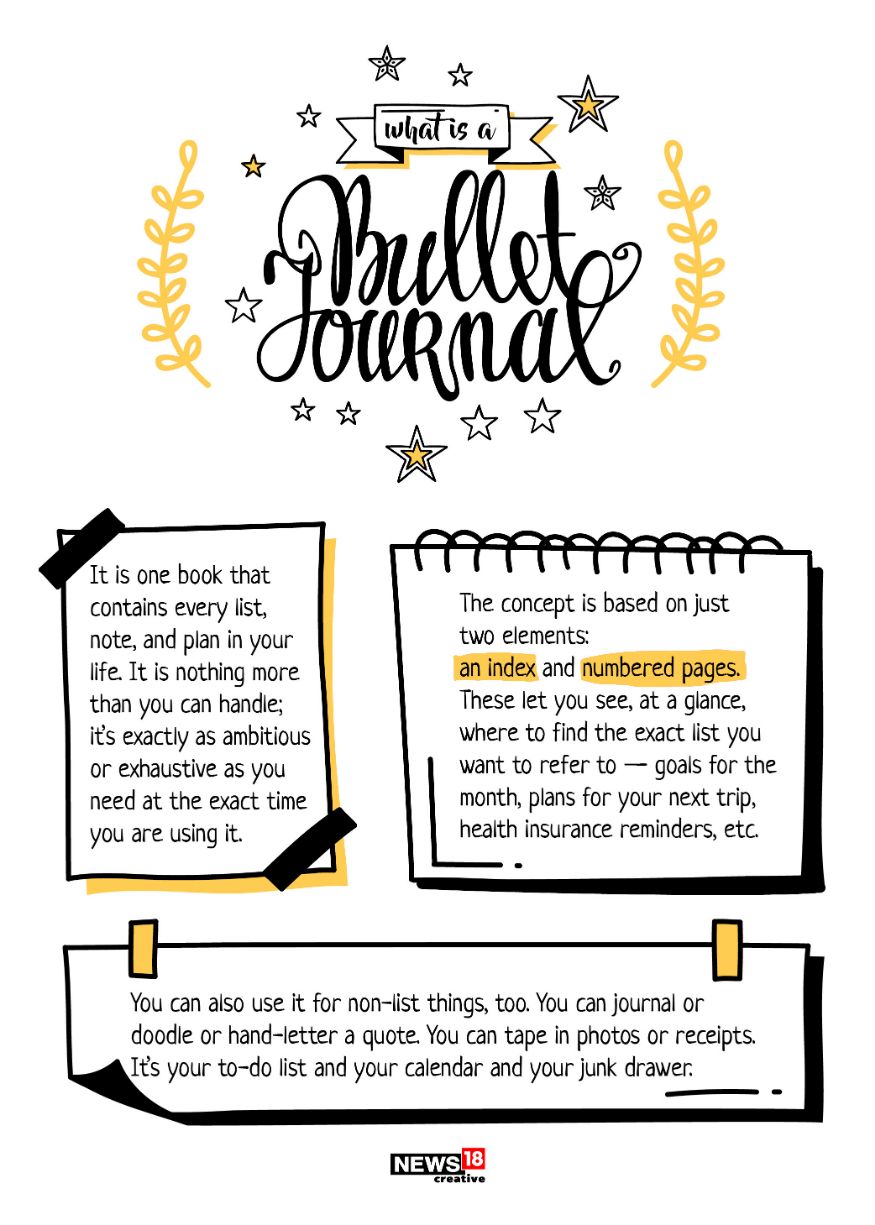 what is a
Bullet
Journal
It is one book that
contains every list,
note, and plan in your
life. It is nothing more
than you can handle;
it's exactly as ambitious
or exhaustive as you
need at the exact time
you are using it.
The concept is based on just
two elements:
an index and numbered pages.
These let you see, at a glance,
where to find the exact list you
want to refer to — goals for the
month, plans for your next trip,
health insurance reminders, etc.
You can also use it for non-list things, too. You can journal or
doodle or hand-letter a quote. You can tape in photos or receipts.
It's your to-do list and your calendar and your junk drawer.
NEWS18
creative